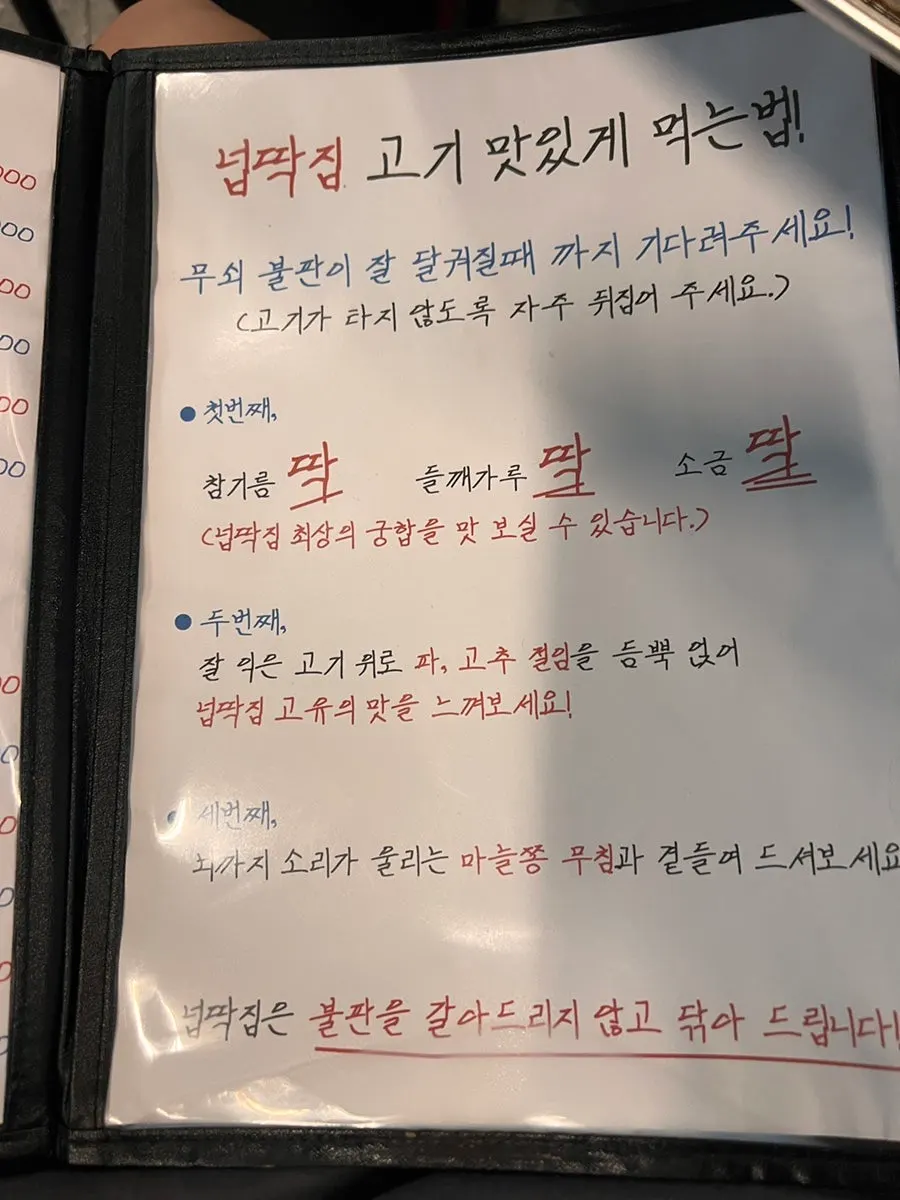 넙딱집 고기 맛있게 먹는법!
무쇠 불판이 잘 달궈질때 까지 기다려주세요!
(고기가 타지 않도록 자주 뒤집어 주세요.)
● 첫번째,
참기름 딱 들깨가루 딱 소금 딱
(넙딱집 최상의 궁합을 맛 보실 수 있습니다.)
● 두번째,
잘 익은 고기 위로 파, 고추 절임을 듬뿍 얹어
넙딱집 고유의 맛을 느껴보세요!
● 세번째,
뇌까지 소리가 울리는 마늘쫑 무침과 곁들여 드셔보세요
넙딱집은 불판을 갈아드리지 않고 닦아 드립니다!